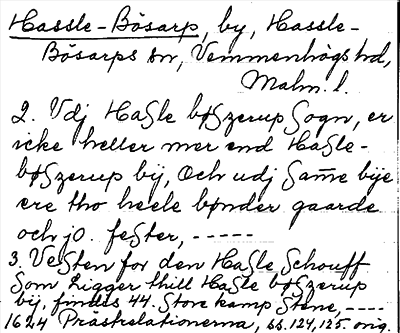 Hassle-Bösarp, by, Hassle-
Bösarps sn, Vemmenhögs hd,
Malm. l.
2. Udj Haßle bößzerup ßogn, er
icke heller mer end Haßle-
bößzerup bÿ, Och udj ßam̄e bÿe
ere tho heele bønder gaarde
och jo. feßter, -----
3. Veßten for den Haßle Schouff
ßom Ligger thill Haßle bößzerup
bÿ, findes 44. Store kamp Stene, ----
1624 Prästrelationerna, ss. 124, 125, orig.